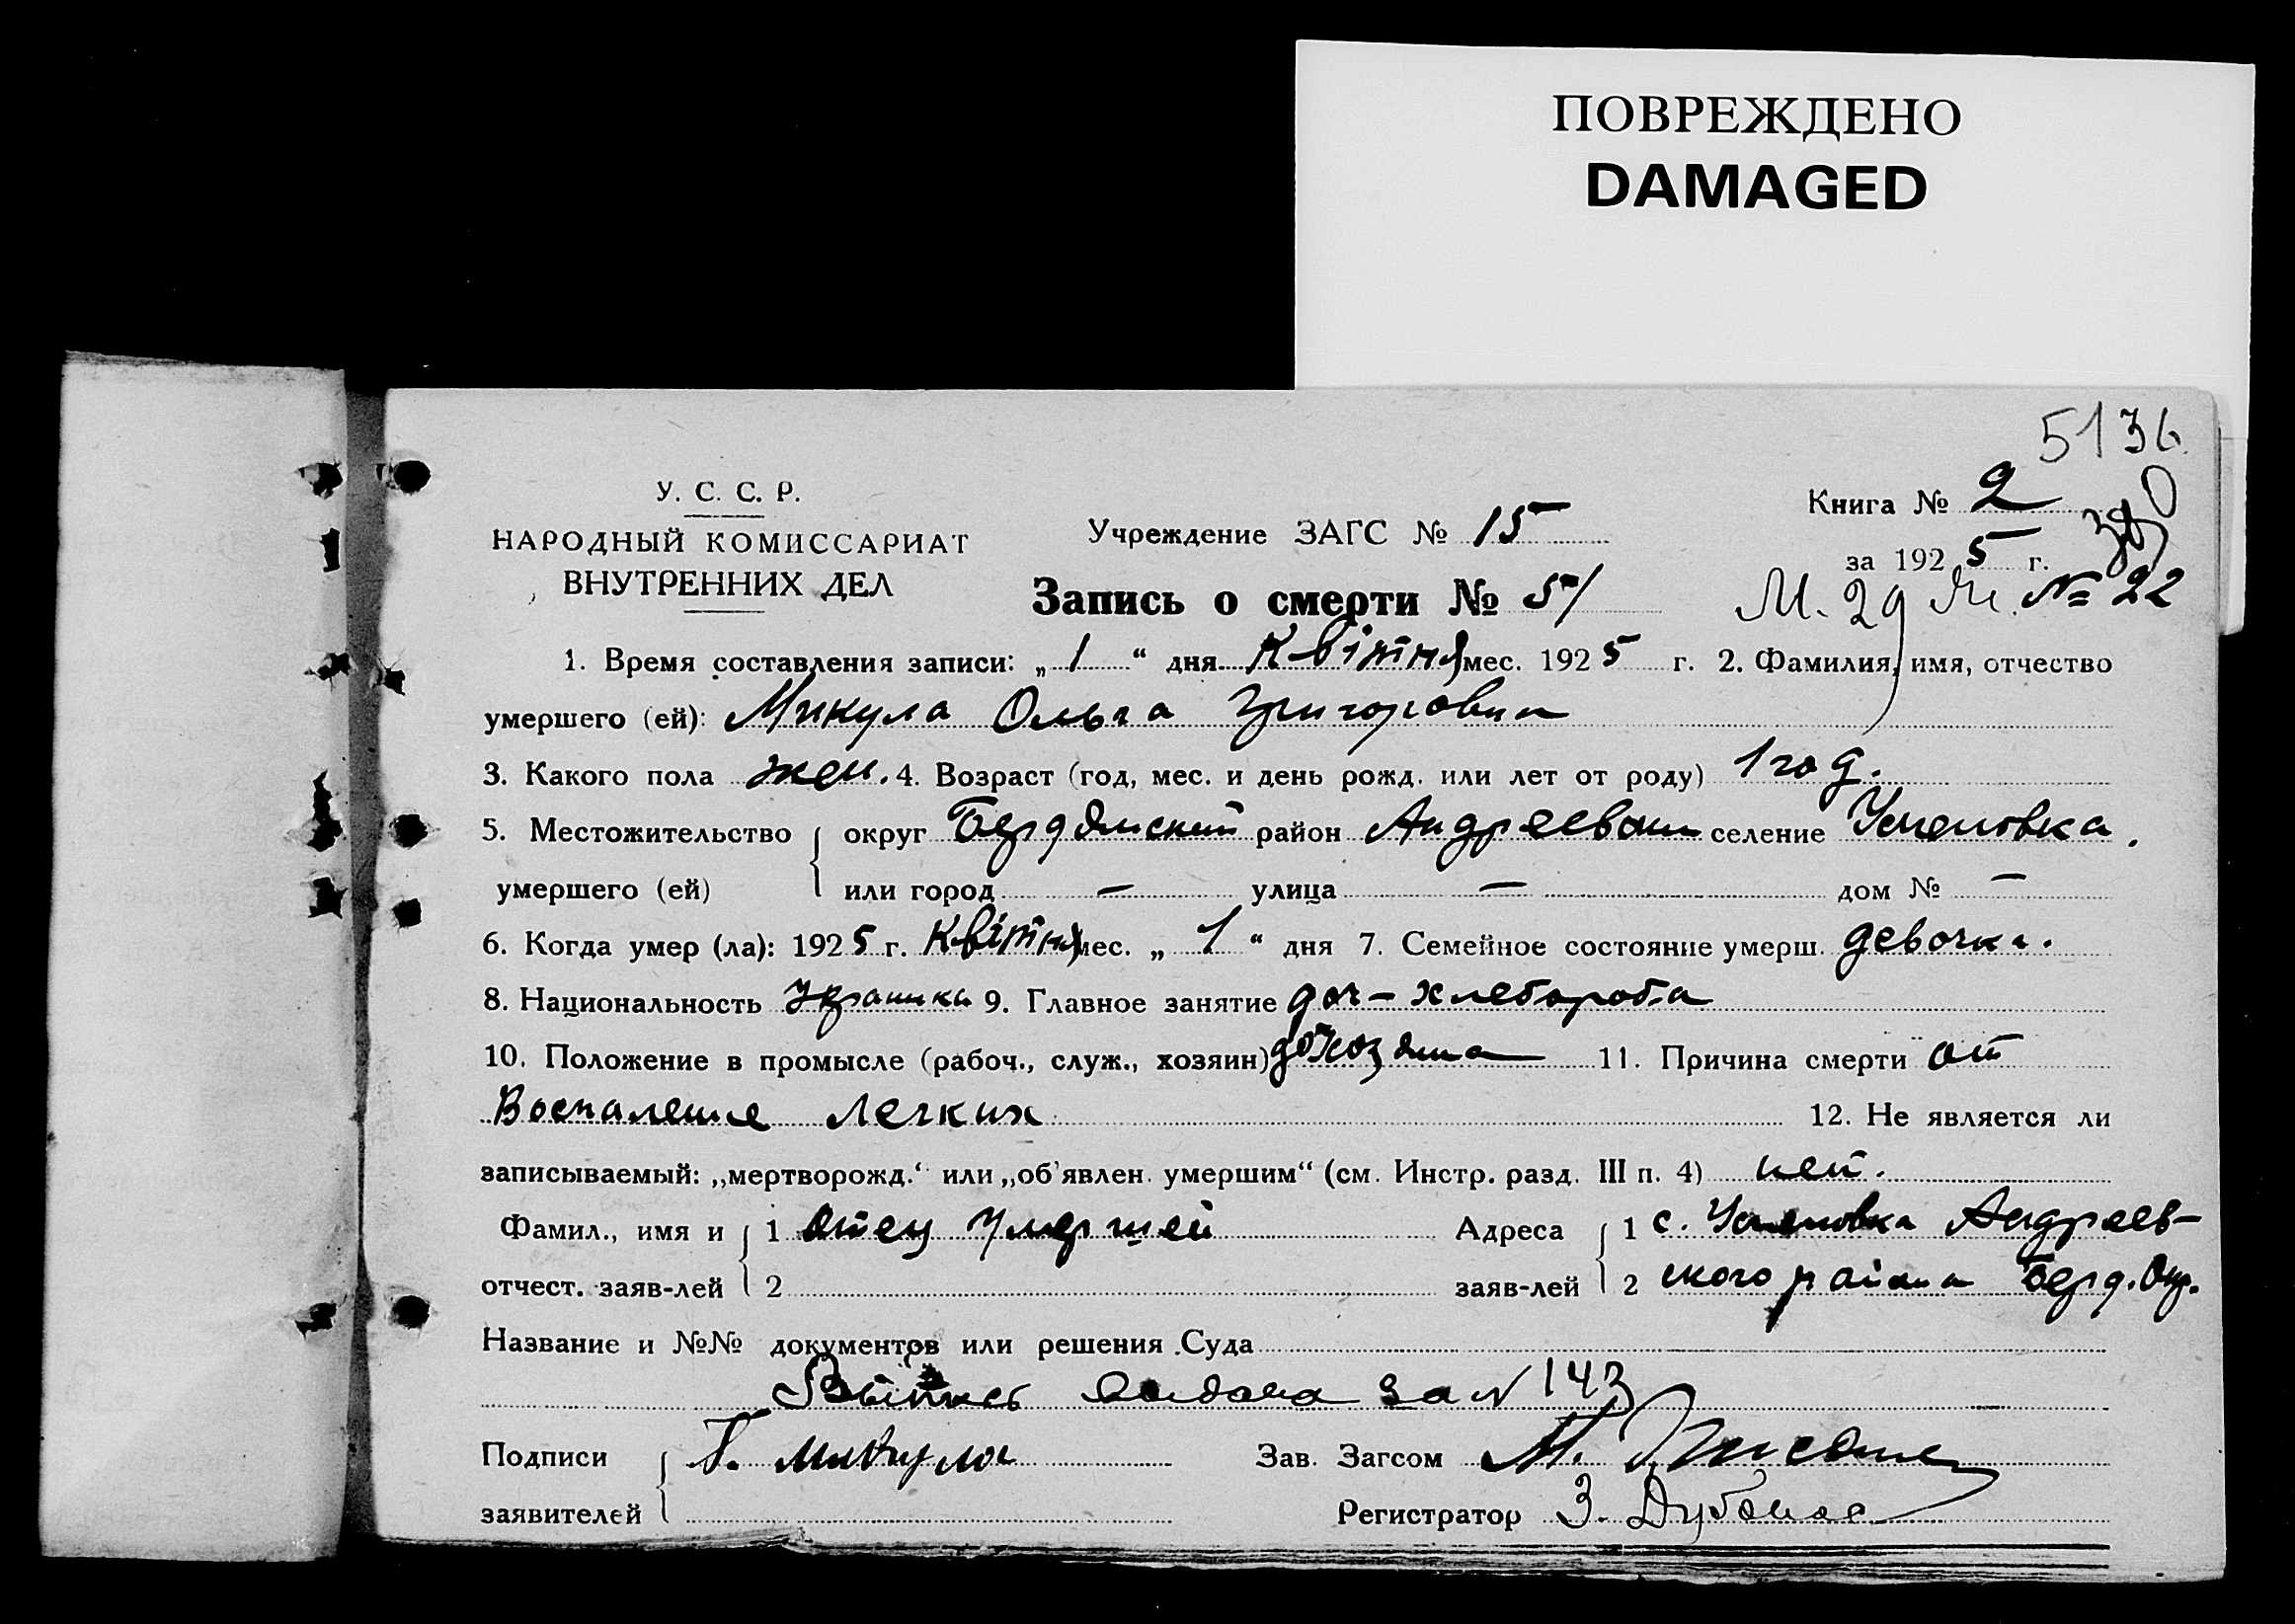 ПОВРЕЖДЕНО
DAMAGED
5136
У. С. С. Р.
НАРОДНЫЙ КОМИССАРИАТ
ВНУТРЕННИХ ДЕЛ
Учреждение ЗАГС № 15
Запись о смерти № 51
Книга № 2
за 1925 г.
№ 22
1. Время составления записи: „ 1 “ дня Квітня мес. 1925 г. 2. Фамилия, имя, отчество
умершего (ей): Микула Ольга Григоровна
3. Какого пола жен. 4. Возраст (год, мес. и день рожд. или лет от роду) 1 год.
5. Местожительство округ Бердянский район Андреевский селение Успеновка.
умершего (ей) или город — улица — дом № —
6. Когда умер (ла): 1925 г. Квітня мес. „ 1 “ дня 7. Семейное состояние умерш. девочка.
8. Национальность Украинка 9. Главное занятие доч-хлебороба
10. Положение в промысле (рабоч., служ., хозяин) 11. Причина смерти от
Воспаление Легких 12. Не является ли
записываемый: „мертворожд.“ или „об'явлен. умершим“ (см. Инстр. разд. III п. 4) нет.
Фамил., имя и 1 Отец Умершей Адреса 1 с. Успеновка Андреев-
отчест. заяв-лей 2 заяв-лей 2 ского района Берд. Окр.
Название и №№ документов или решения Суда
за N 143
Подписи Г. Микула Зав. Загсом М.
заявителей Регистратор З.